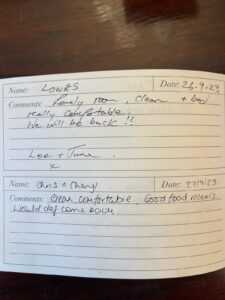 Name: LOWES Date: 26-9-23
Comments: Lovely room, clean + bed
really comfortable.
We will be back !!
Lee + June
x
Name: Chris + Cheryl Date: 27/9/23
Comments: Clean, comfortable. Good food recom's
Would def come back.